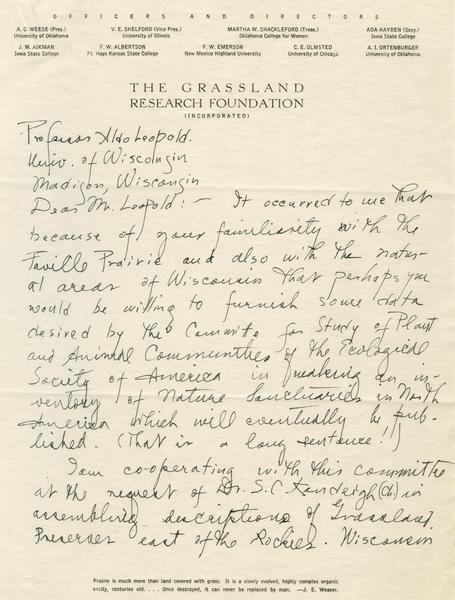 OFFICERS AND DIRECTORS
A. O. WEESE (Pres.) V. E. SHELFORD (Vice Pres.) MARTHA W. SHACKLEFORD (Treas.) ADA HAYDEN (Secy.)
University of Oklahoma University of Illinois Oklahoma College for Women Iowa State College
J. M. AIKMAN F. W. ALBERTSON F. W. EMERSON C. E. OLMSTED A. I. ORTENBURGER
Iowa State College Ft. Hays Kansas State College New Mexico Highland University University of Chicago University of Oklahoma
THE GRASSLAND
RESEARCH FOUNDATION
(INCORPORATED)
Professor Aldo Leopold.
Univ. of Wisconsin
Madison, Wisconsin
Dear Mr. Leopold:- It occurred to me that
because of your familiarity with the
Faville Prairie and also with the natur-
al areas of Wisconsin that perhaps you
would be willing to furnish some data
desired by the Committe for Study of Plant
and Animal Communities of the Ecological
Society of America in making an in-
ventory of Nature Sanctuaries in North
America which will eventually be pub-
lished. (That is a long sentence!)
I am co-operating with this committee
at the request of Dr. S. C. Kendeigh (Ch.) in
assembling descriptions of Grassland
Preserves east of the Rockies. Wisconsin
Prairie is much more than land covered with grass. It is a slowly evolved, highly complex organic
entity, centuries old. . . . Once destroyed, it can never be replaced by man. —J. E. Weaver.